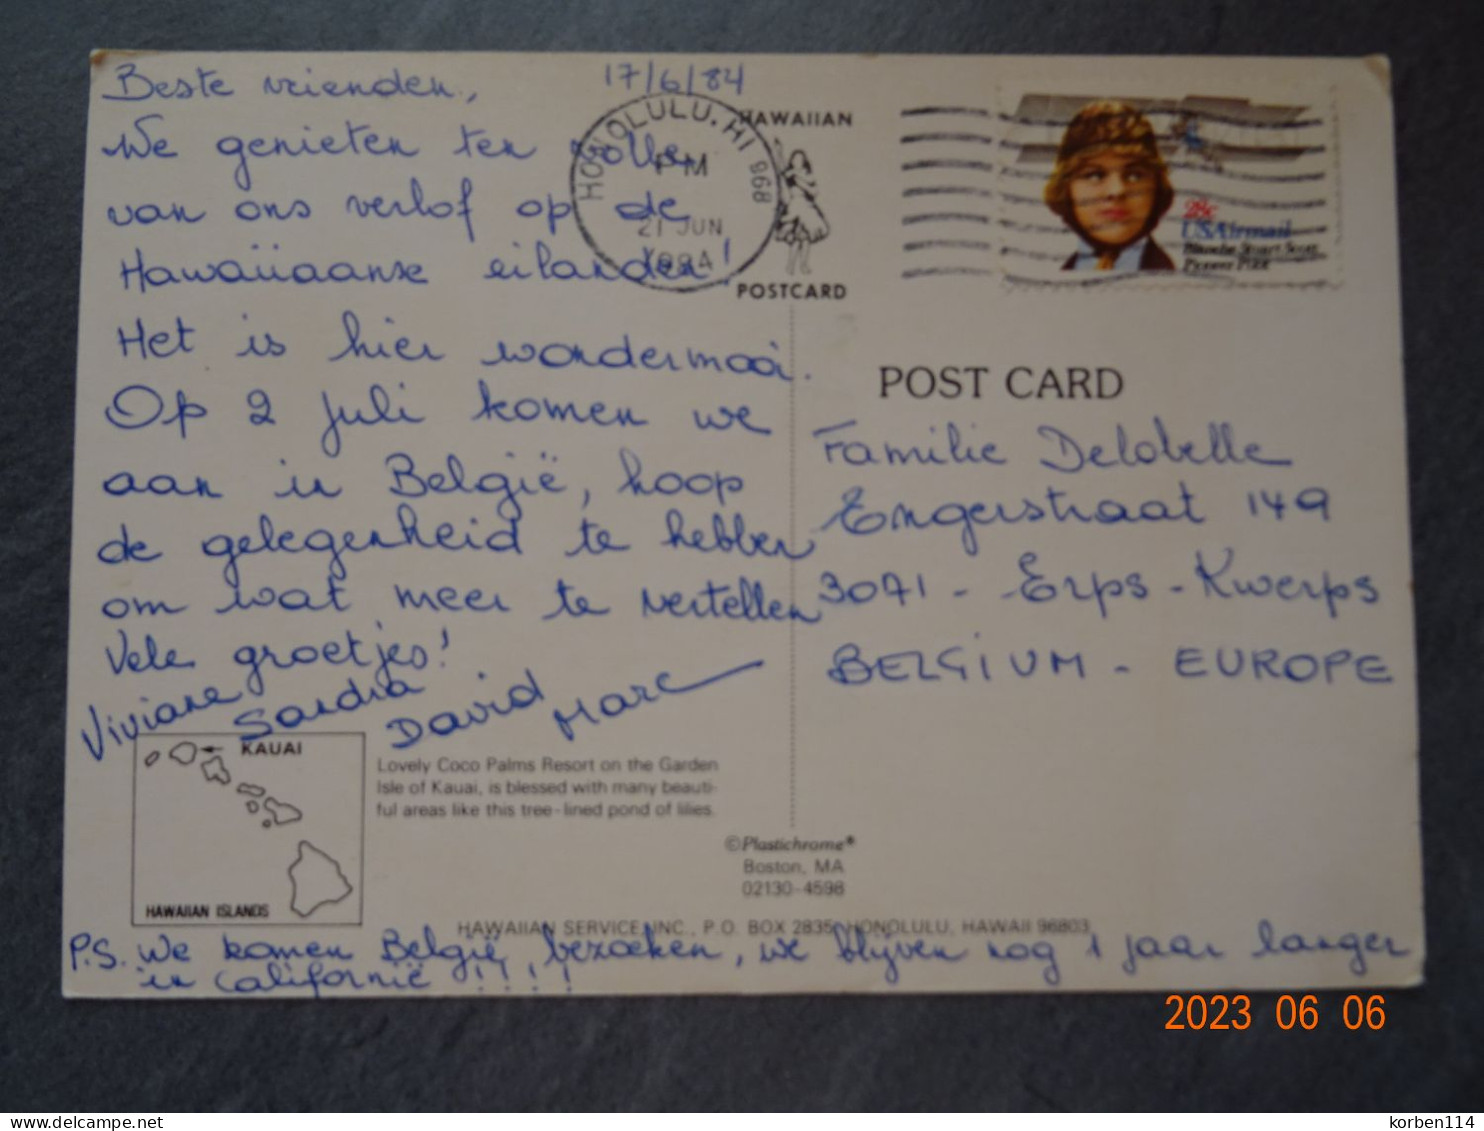 Beste vrienden,
17/6/84
We genieten ten volle
van ons verlof op de
Hawaiiaanse eilanden!
Het is hier wondermooi.
Op 2 juli komen we
aan in België, hoop
de gelegenheid te hebben
om wat meer te vertellen
Vele groetjes!
Viviane Sandra David Marc
HONOLULU, HI 968
PM
21 JUN
1984
HAWAIIAN
POSTCARD
28c
USAirmail
Blanche Stuart Scott
Pioneer Pilot
POST CARD
Familie Delobelle
Engerstraat 149
3071 - Erps-Kwerps
BELGIUM - EUROPE
KAUAI
HAWAIIAN ISLANDS
Lovely Coco Palms Resort on the Garden
Isle of Kauai, is blessed with many beauti-
ful areas like this tree-lined pond of lilies.
©Plastichrome®
Boston, MA
02130-4598
HAWAIIAN SERVICE, INC., P.O. BOX 2835, HONOLULU, HAWAII 96803
P.S. We komen België bezoeken, we blijven nog 1 jaar langer
in Californië !!!!
2023 06 06
korben114